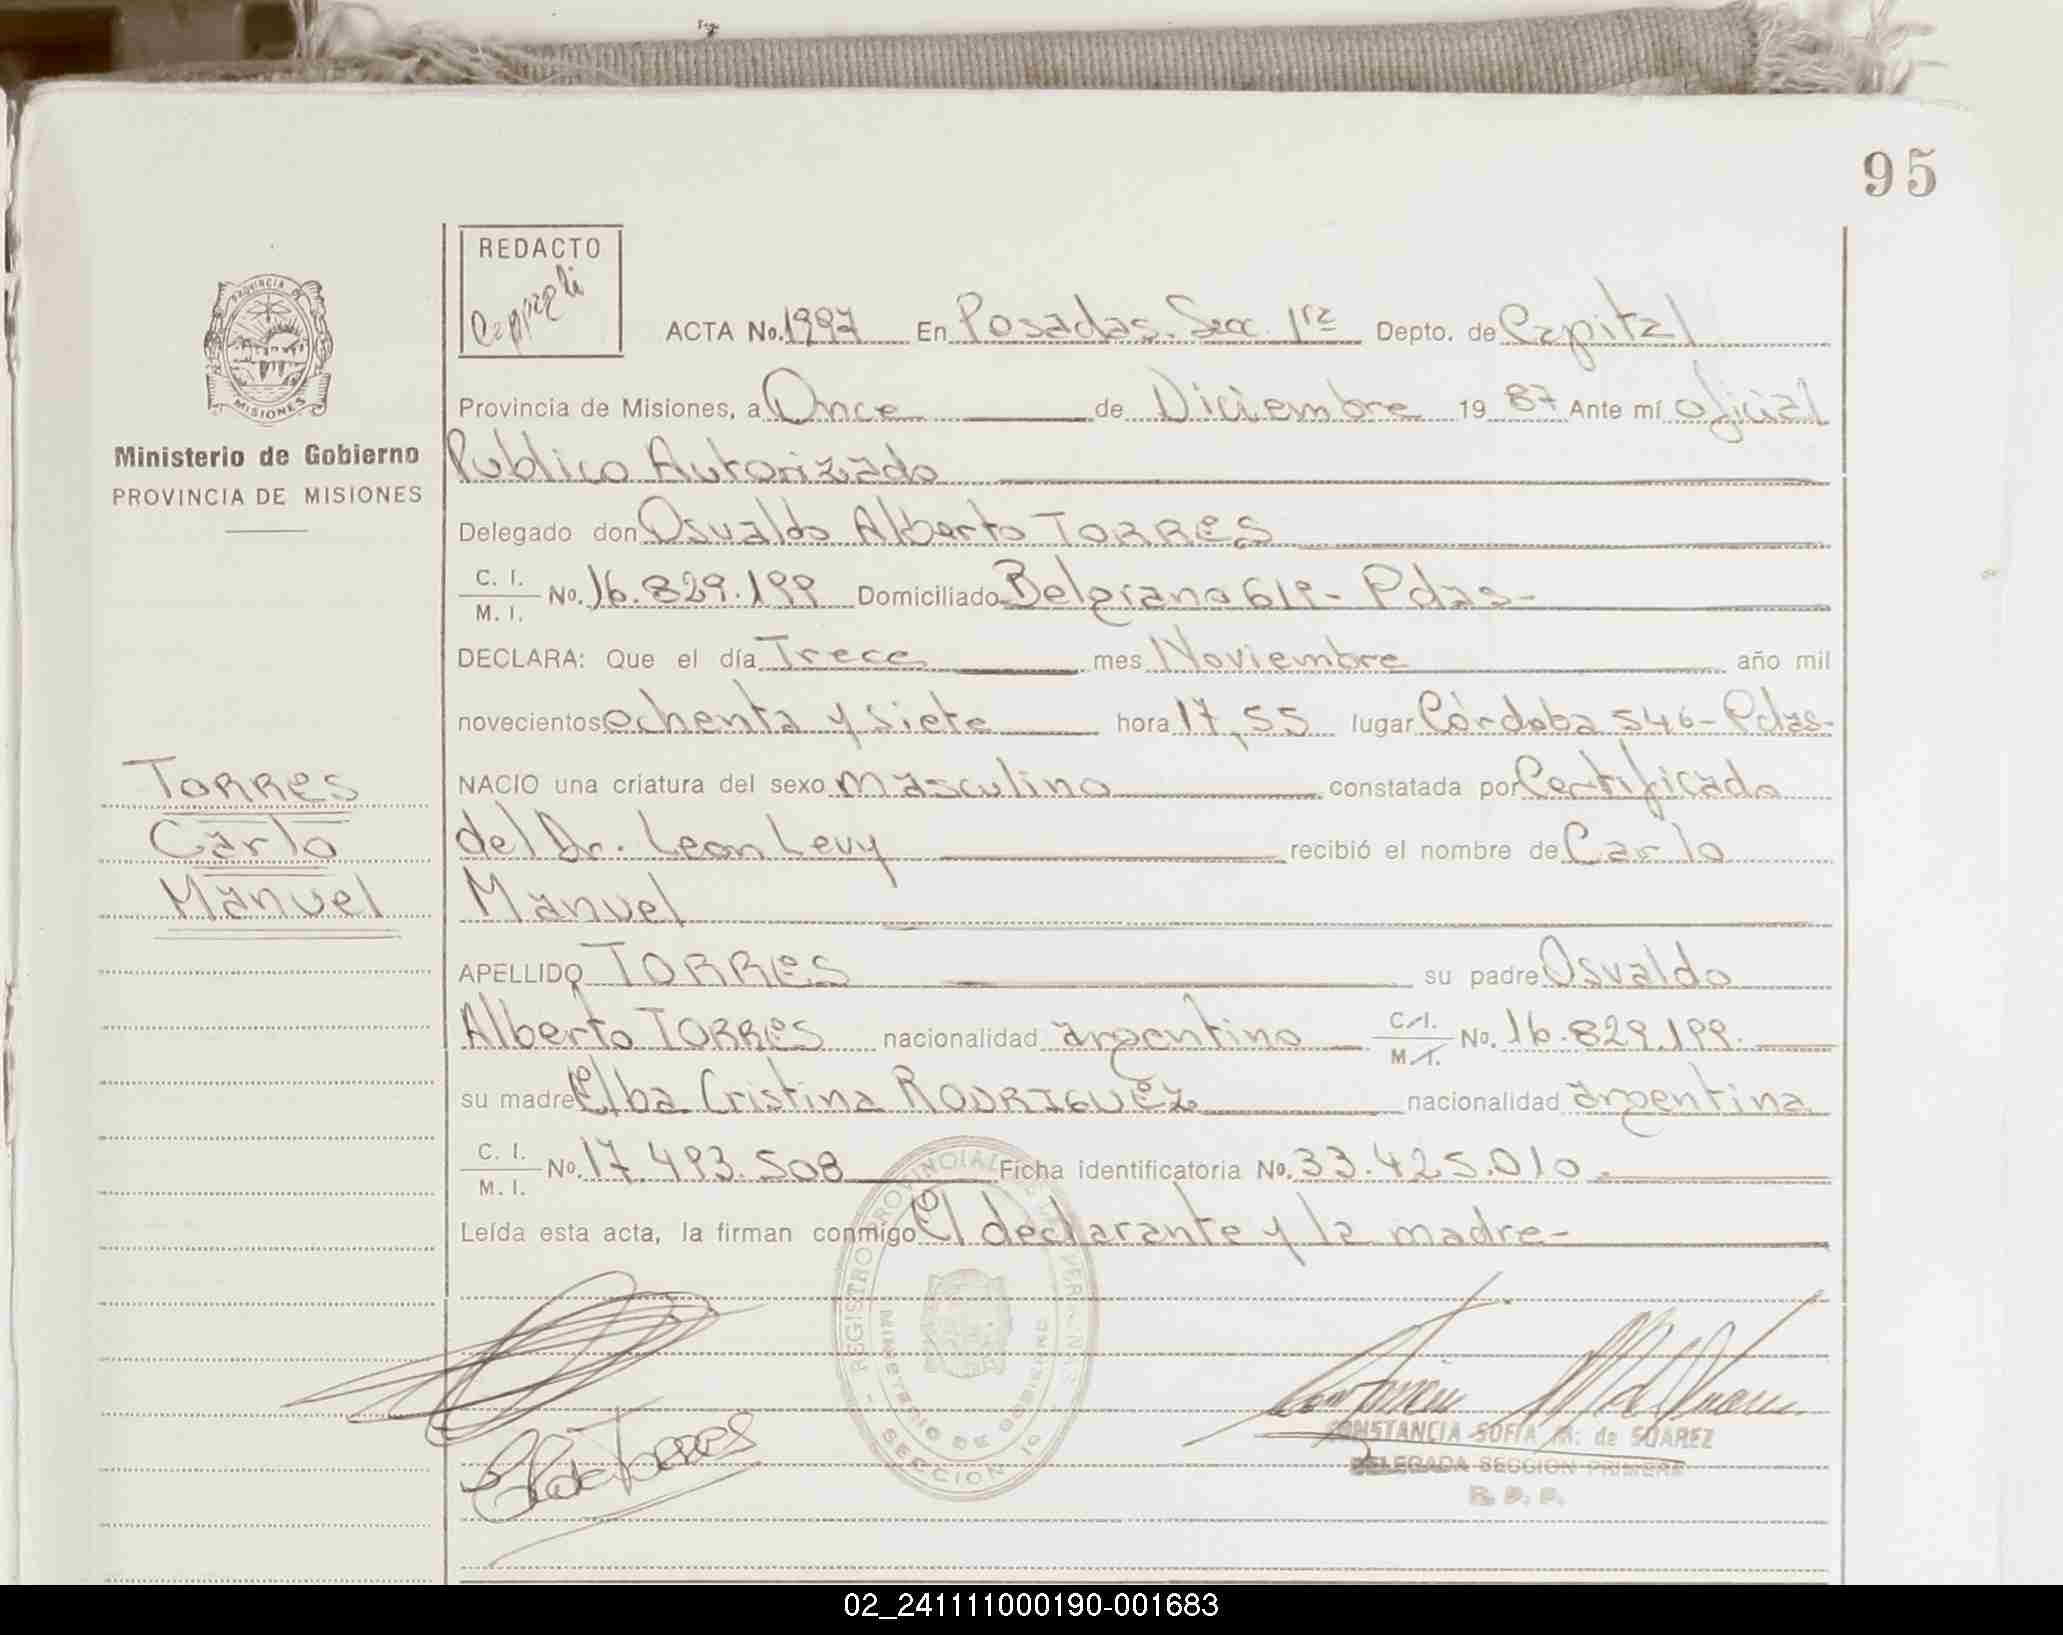 95
REDACTO
PROVINCIA DE
MISIONES
Ministerio de Gobierno
PROVINCIA DE MISIONES
ACTA No. 1997 En Posadas. Secc. 1ra Depto. de Capital
Provincia de Misiones, a Once de Diciembre 19 87 Ante mí oficial
Publico Autorizado
Delegado don Osvaldo Alberto TORRES
C. I.
M. I. No. 16.829.199 Domiciliado Belgrano 619- Pdas-
DECLARA: Que el día Trece mes Noviembre año mil
novecientos ochenta y siete hora 17,55 lugar Córdoba 546- Pdas-
NACIO una criatura del sexo masculino constatada por Certificado
del Dr. Leon Levy recibió el nombre de Carlo
Manuel
APELLIDO TORRES su padre Osvaldo
Alberto TORRES nacionalidad argentino C.I.
M.I. No. 16.829.199.
su madre Elba Cristina RODRIGUEZ nacionalidad argentina
C. I.
M. I. No. 17.493.508 Ficha identificatoria No. 33.425.010.
Leída esta acta, la firman conmigo El declarante y la madre-
TORRES
Carlo
Manuel
REGISTRO PROVINCIAL DE LAS PERSONAS
MINISTERIO DE GOBIERNO
- SECCION 1a -
E R de Torres
CONSTANCIA SOFIA M. de SUAREZ
DELEGADA SECCION PRIMERA
R. P. P.
02_241111000190-001683